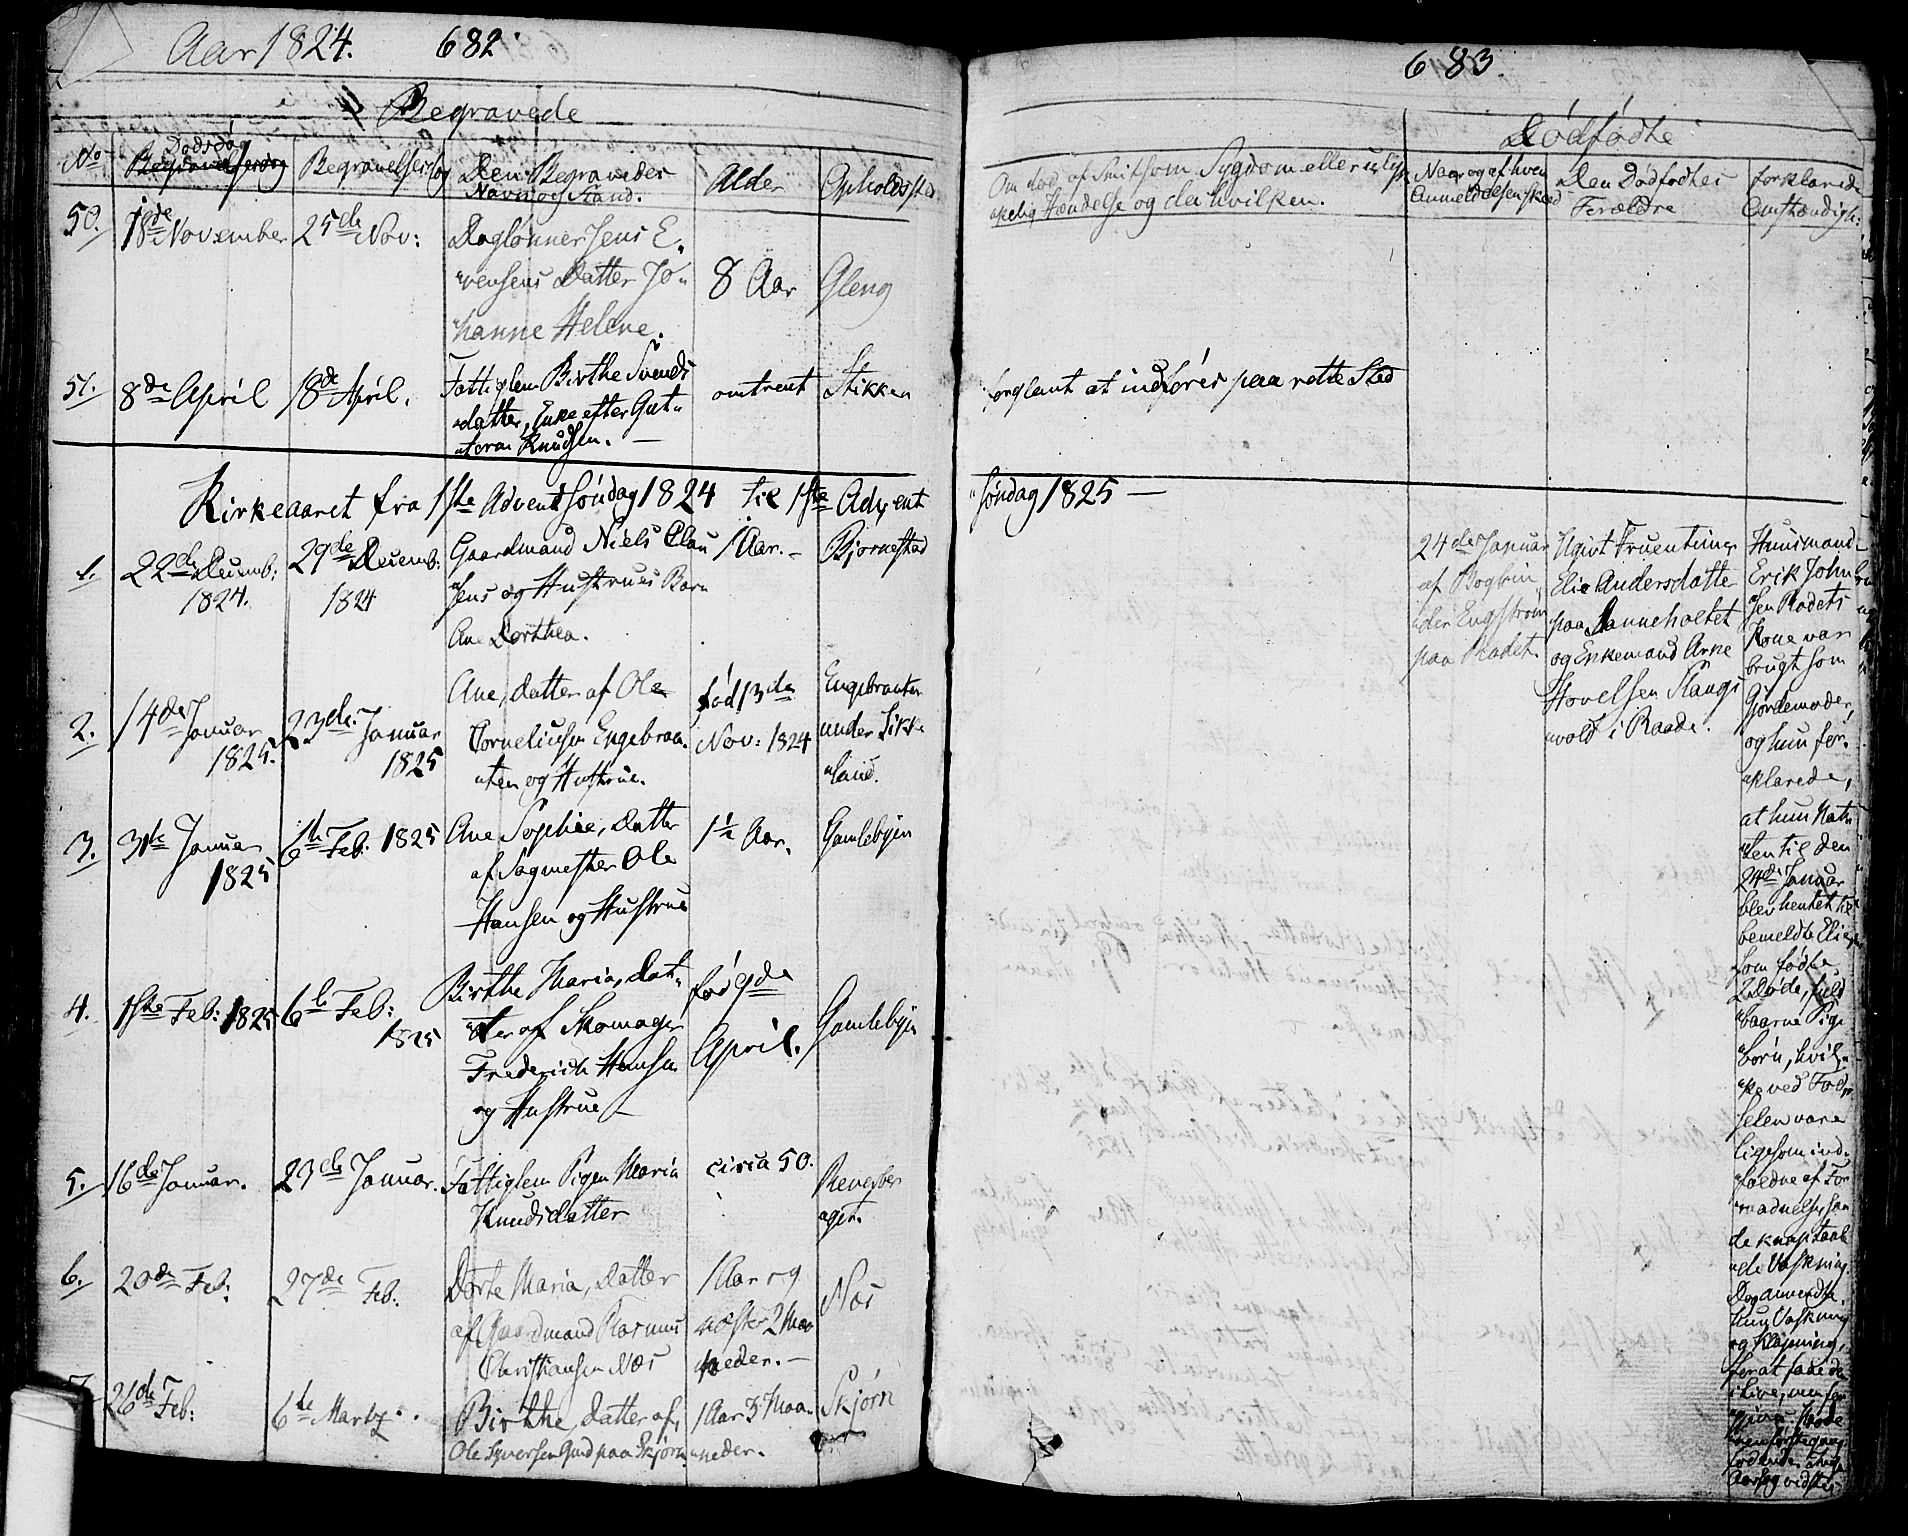 Aar 1824. 682.
Begravede
No
Dødsdag
Begravelsesdag
Begravelsesdag
Den Begravedes
Navn og Stand.
Alder
Opholdssted
50.
18de November
25de Nov:
Daglønner Jens E„
„vensens Datter Jo„
„hanne Helene.
8 Aar
Gleng
51.
8de April
18de April.
Fattiglem Birthe Svends
„datter, Enke efter Gut„
„toron Knudsen. —
omtrent
Stikken
Kirkeaaret fra 1ste Advent søndag 1824 til 1ste Advent
1.
22de Decemb:
1824.
29de Decemb:
1824
Gaardmand Niels Clau
„sens og Hustrues Barn
Ane Dorthea.
1 Aar. –
Bjørnestad
2.
14de Januar
1825.
23de Januar
1825
Ane, Datter af Ole
Corneliusen Engebraa„
„ten og Hustrue.
fød 13de
Nov: 1824
Engebraaten
under Sikke
„land.
3.
31te Januar
1825
6te Feb: 1825
Ane Sophie, Datter
af Sagmester Ole
Hansen og Hustrue
1½ Aar.
Gamlebyen
4.
1ste Feb: 1825
6te Feb:
1825
Birthe Maria, Dat„
„ter af Skomager
Frederich Hansen
og Hustrue –
fød 9de
April.
Gamlebyen
5.
16de Januar.
23de Januar.
Fattiglem Pigen Maria
Knudsdatter
circa 50.
6.
20de Feb:
27de Feb.
Dorte Maria, Datter
af Gaardmand Rasmus
Christiansen Næs
1 Aar og
næsten 2 Maa
neder. –
Næs
7.
26de Feb:
6te Martz.
Birthe, Datter af
Ole Syversen Gaard paa Skjørn
1 Aar 3 Maa„
„neder.
Skjørn
683.
Dødfødte
Om død af smitsom Sygdom eller ulyk„
„kelig Hændelse og da hvilken.
Naar og af hvem
Anmeldelsen skeed
Den Dødfødtes
Forældre
forklarede
Omstændigh:
forglemt at indføres paa rette Sted
„søndag 1825 —
24de Januar
af Bogbin„
„der Engstrøm
paa Rødet.
Ugivt Fruentimer
Elie Andersdatter
paa Danneholtet
og Enkemand Arne
Hovelsen Slangs
„vold i Raade.
Huusmand
Erik John
„sen Rødets
Kone var
brugt som
Gjordemoder,
og hun for„
„klarede,
at hun Nat„
„ten til den
24de Januar
blev hentet til
bemeldte Elie,
som fødte
2 Døde, fuld
„baarne Pige
„børn, hvil„
„ke ved Fød„
selen vare
ligesom ind„
„foldne af For„
„raadnelse, saa
de knap taal„
„de Vaskning.
Dog anvendte
hun Vaskning
og Klapning,
for at faae dem
i Live, men for„